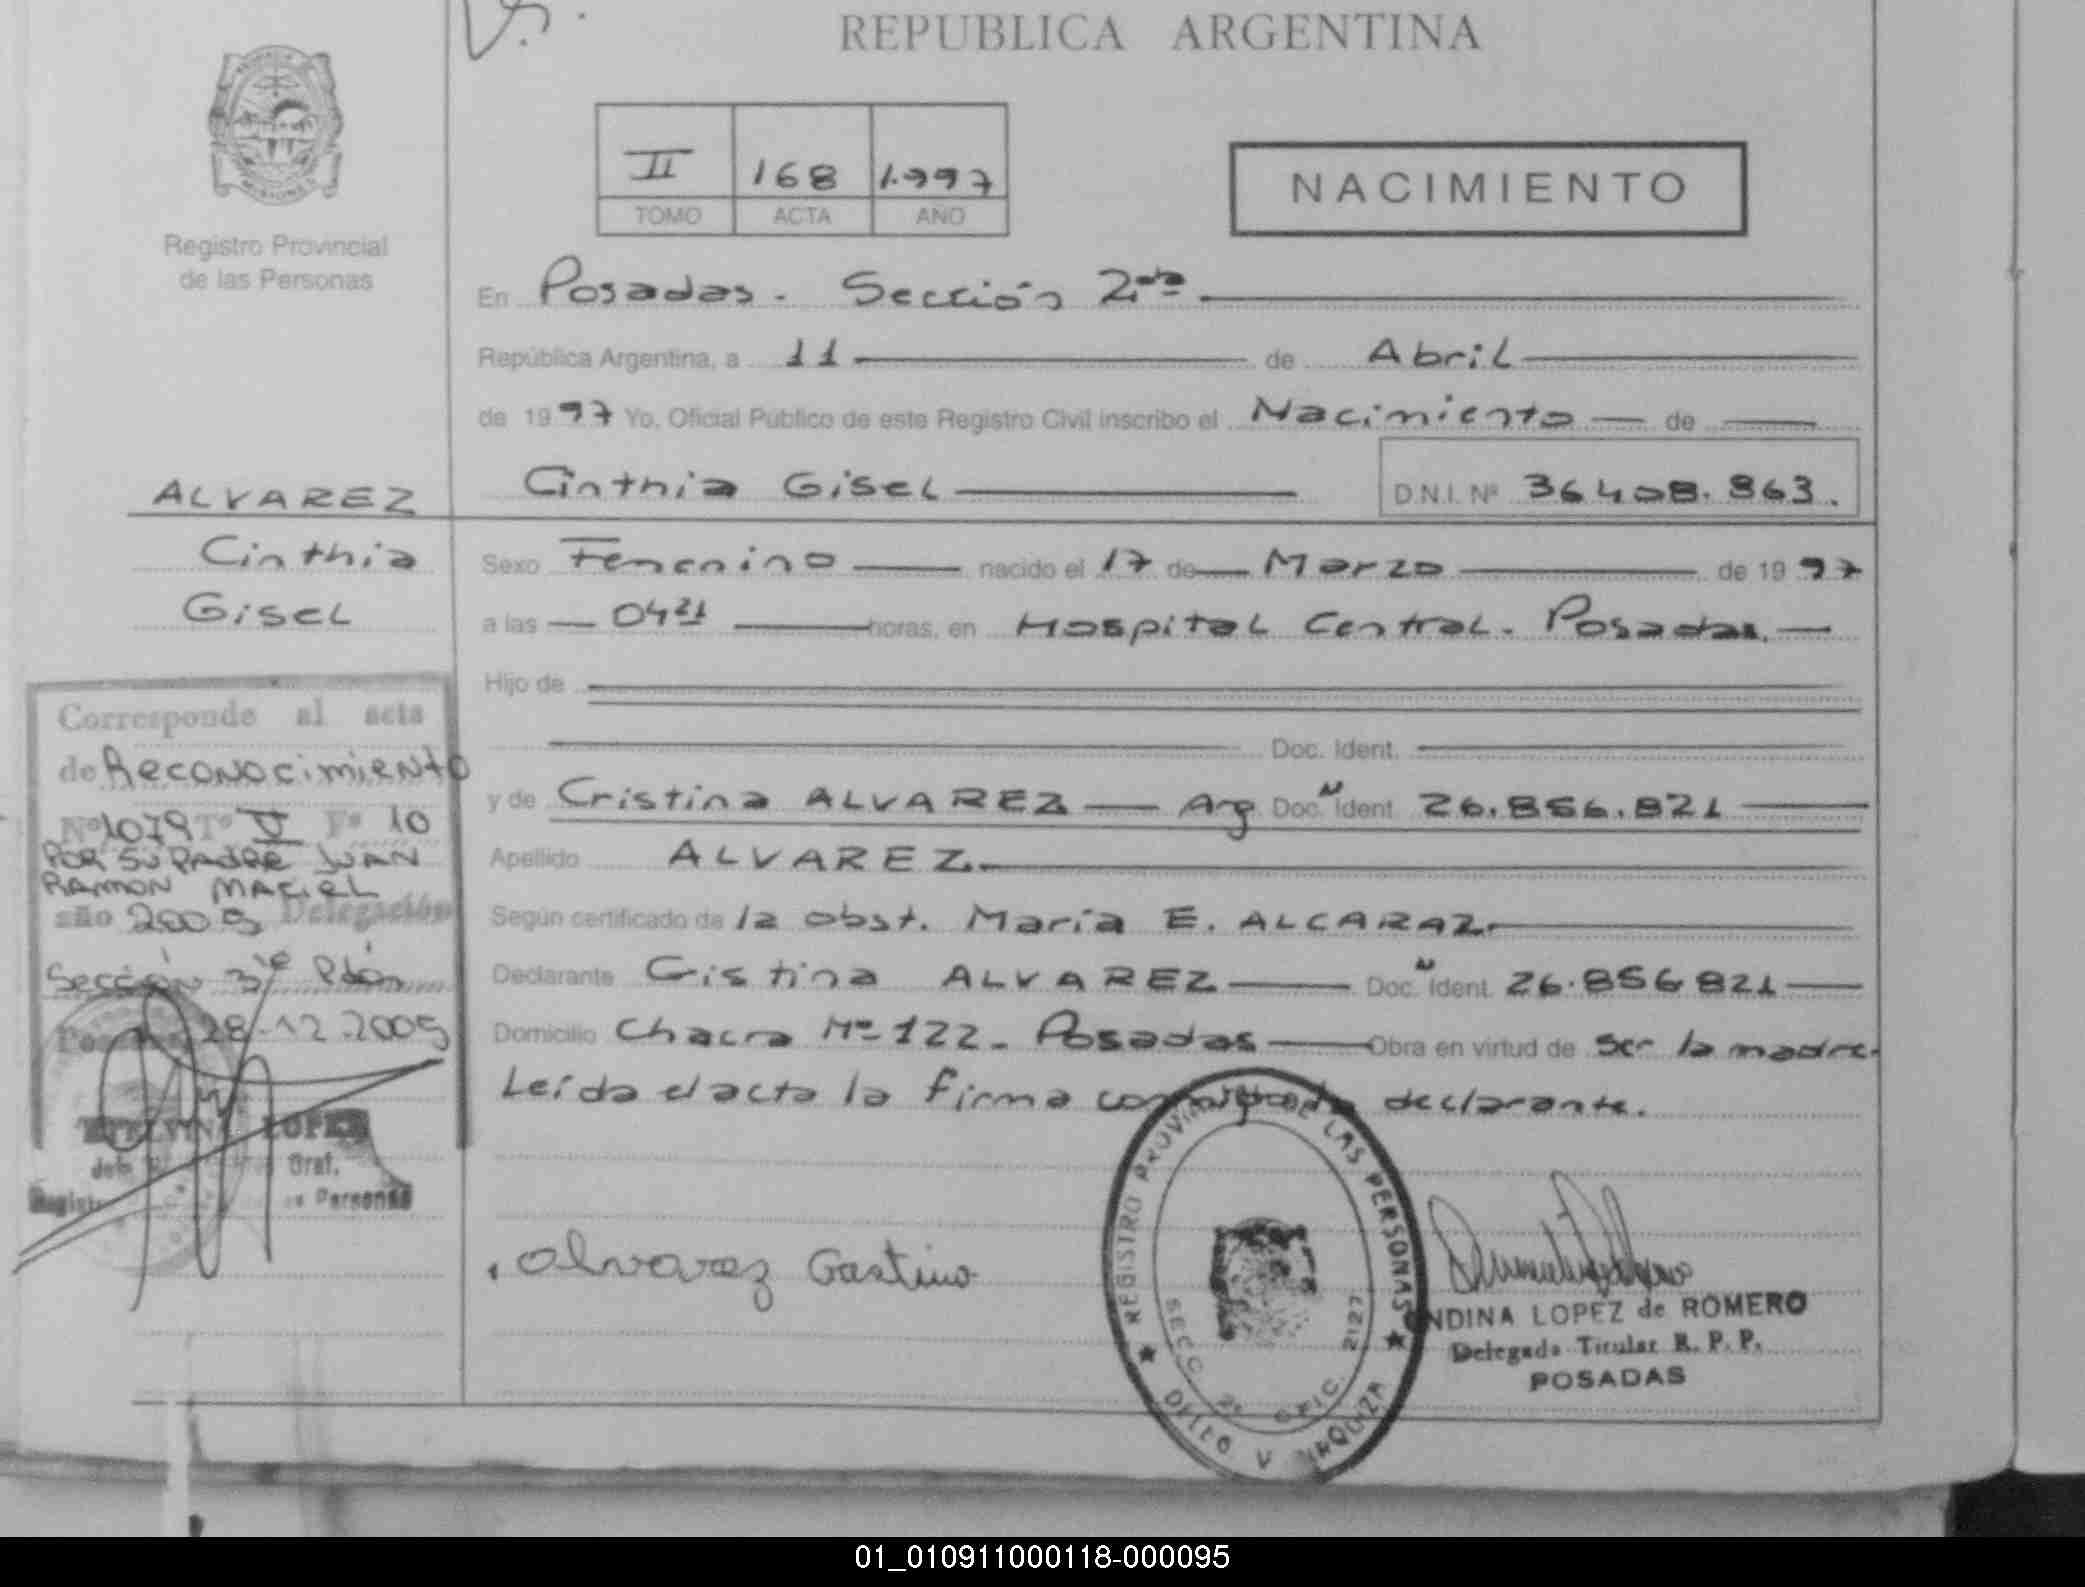 REPUBLICA ARGENTINA
II 168 1.997
TOMO ACTA AÑO
NACIMIENTO
Registro Provincial
de las Personas
En Posadas. Sección 2da
República Argentina, a 11 de Abril
de 1997 Yo, Oficial Público de este Registro Civil inscribo el Nacimiento de
Cinthia Gisel D.N.I. Nº 36.408.863.
ALVAREZ
Cinthia
Gisel
Sexo Femenino nacido el 17 de Marzo de 1997
a las 04 21 horas, en Hospital Central. Posadas.
Hijo de
Doc. Ident.
y de Cristina ALVAREZ Arg Doc. Ident. 26.856.821
Apellido ALVAREZ
Según certificado de la obst. María E. ALCARAZ
Declarante Cristina ALVAREZ Doc. Ident. 26.856821
Domicilio Chacra Nº 122. Posadas Obra en virtud de ser la madre.
Leída el acta la firma conmigo la declarante.
Corresponde al acta
de Reconocimiento
Nº 1079 Tº V Fº 10
POR SU PADRE JUAN
RAMON MACIEL
año 2005 Delegación
Sección 3ra
28-12-2005
LOPEZ
Graf.
Personas
Alvarez Cristina
REGISTRO PROVINCIAL DE LAS PERSONAS
SECC. 2ª OFIC. 2127
ONDINA LOPEZ de ROMERO
Delegada Titular R. P. P.
POSADAS
01_010911000118-000095